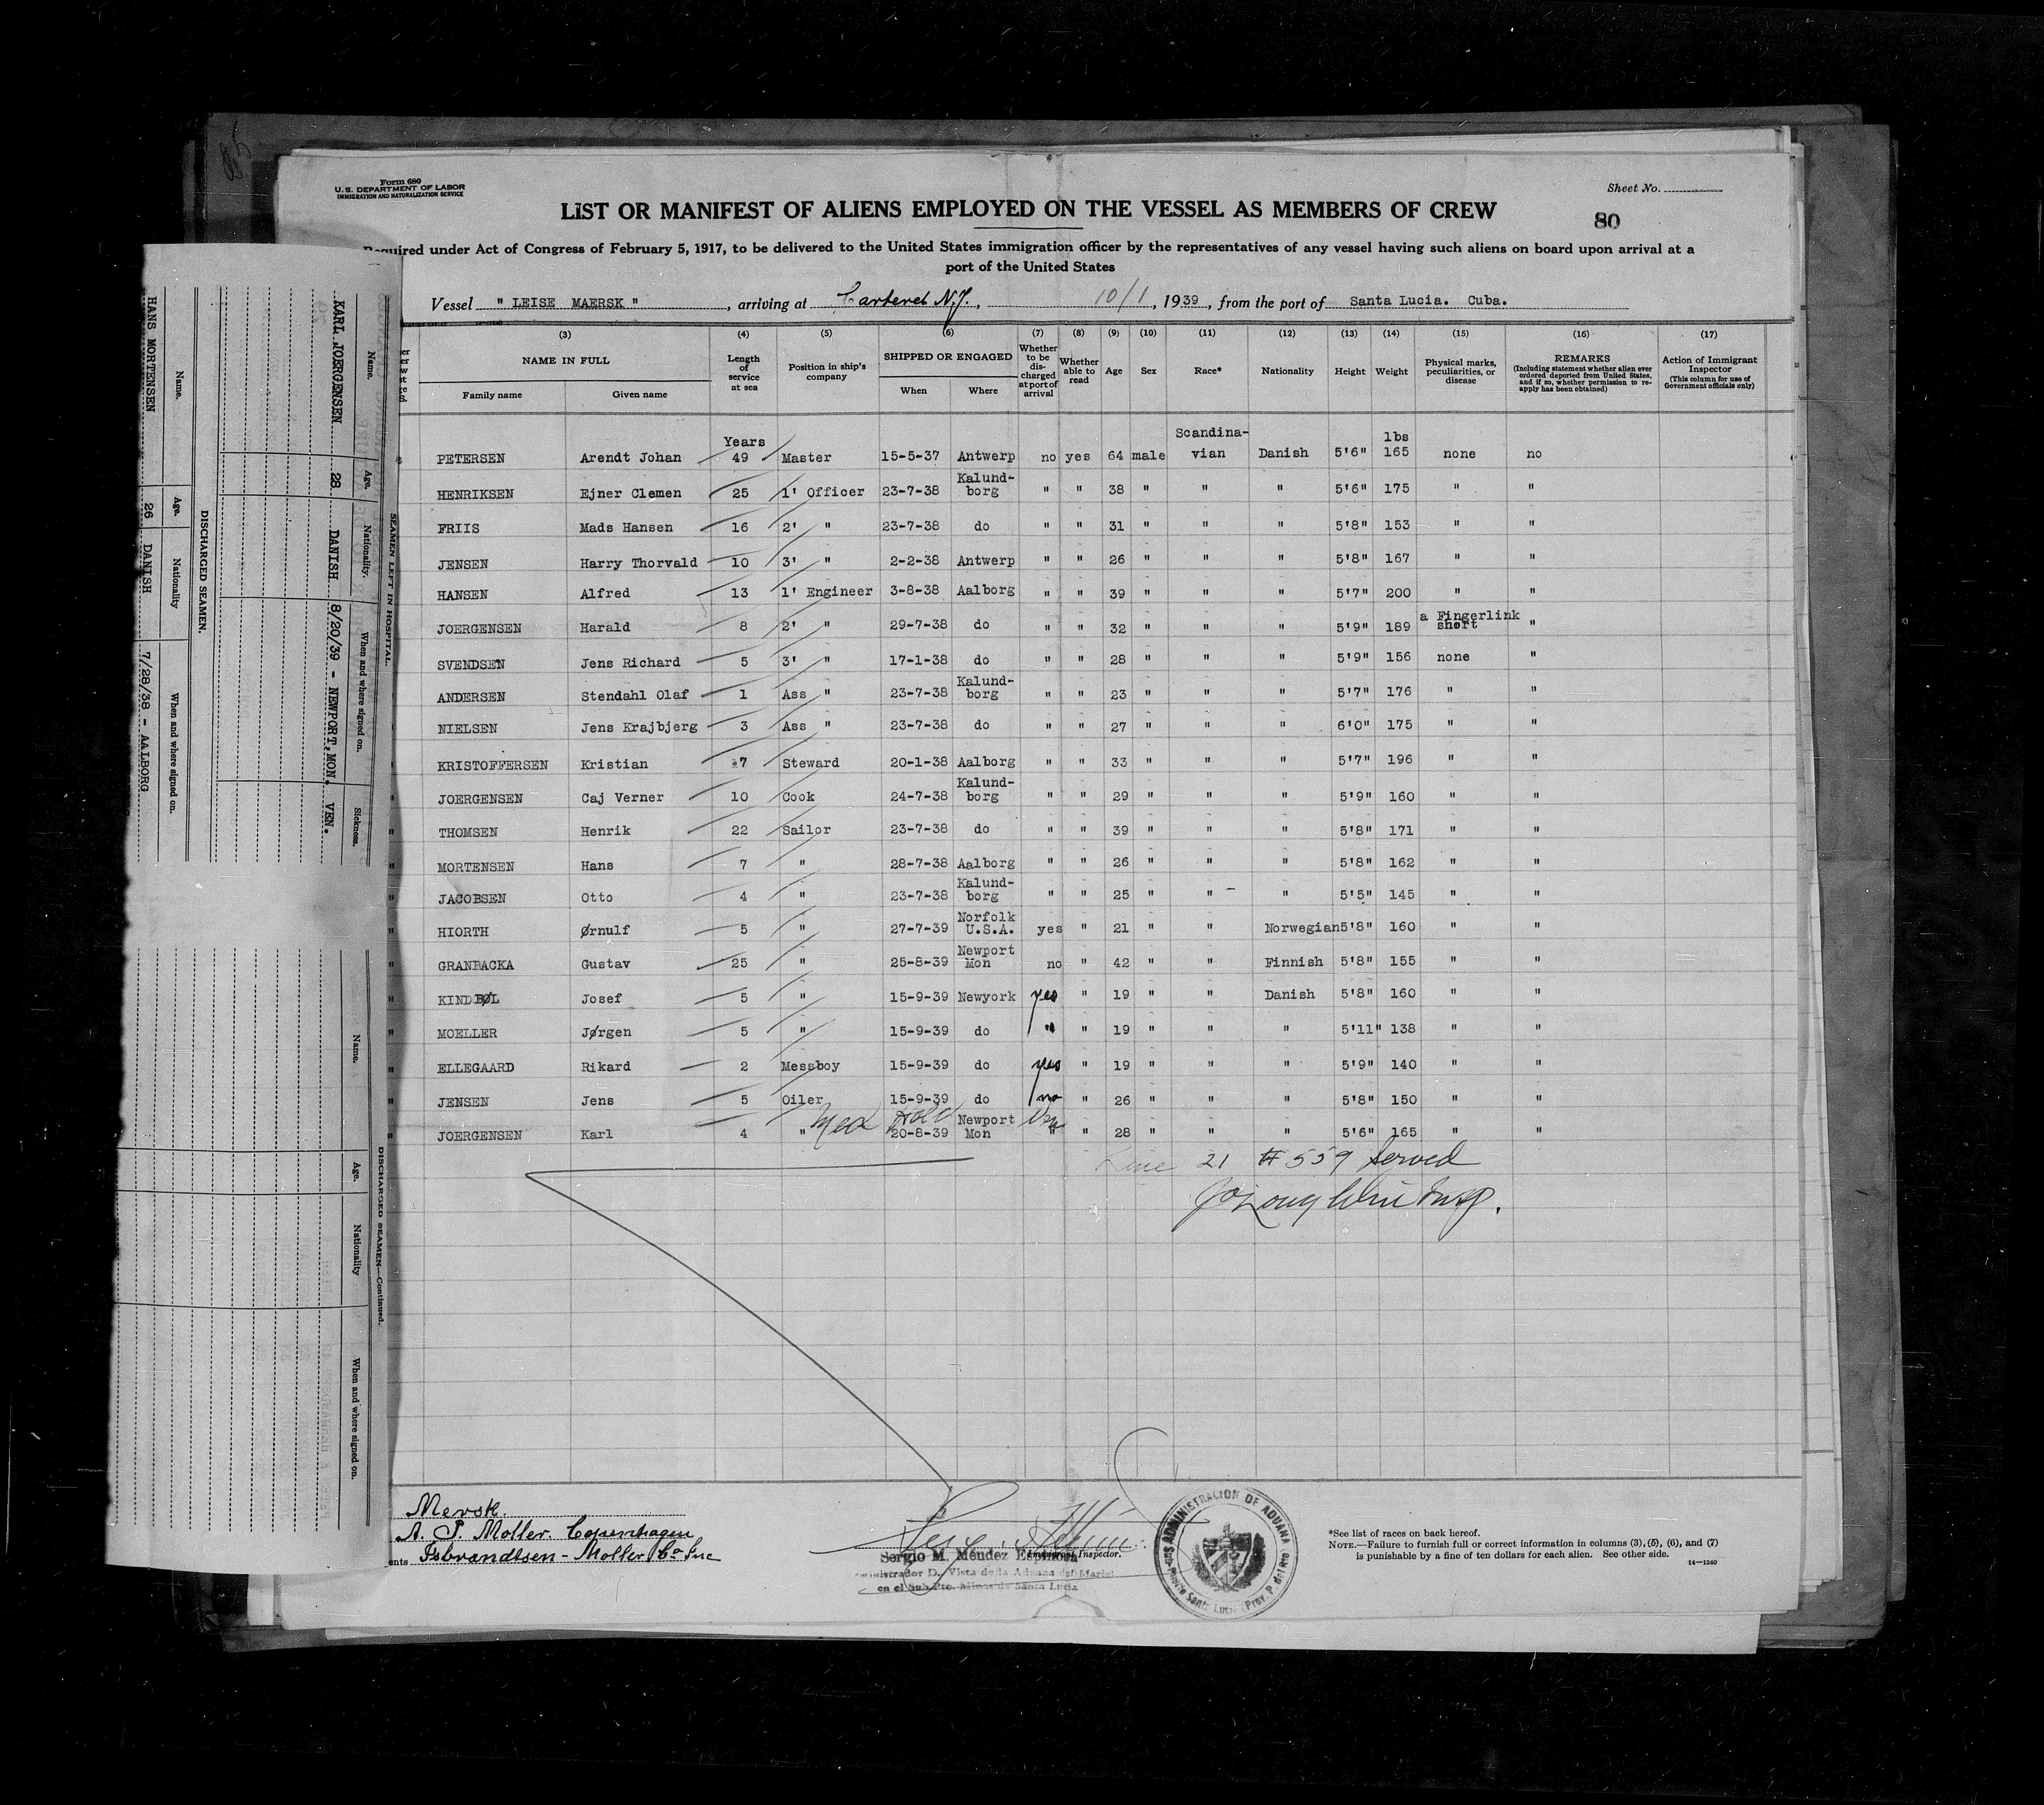 Form 680
U.S. DEPARTMENT OF LABOR
IMMIGRATION AND NATURALIZATION SERVICE
Sheet No.
LIST OR MANIFEST OF ALIENS EMPLOYED ON THE VESSEL AS MEMBERS OF CREW
80
Required under Act of Congress of February 5, 1917, to be delivered to the United States immigration officer by the representatives of any vessel having such aliens on board upon arrival at a
port of the United States
Vessel " LEISE MAERSK ", arriving at Carteret N.J., 10/1, 1939, from the port of Santa Lucia. Cuba.
(3) (4) (5) (6) (7) (8) (9) (10) (11) (12) (13) (14) (15) (16) (17)
NAME IN FULL
Family name Given name
Length of service at sea
Position in ship's company
SHIPPED OR ENGAGED
When Where
Whether to be discharged at port of arrival
Whether able to read
Age
Sex
Race*
Nationality
Height
Weight
Physical marks, peculiarities, or disease
REMARKS
(Including statement whether alien ever ordered deported from United States, and if so, whether permission to reapply has been obtained)
Action of Immigrant Inspector
(This column for use of Government officials only)
PETERSEN Arendt Johan Years 49 Master 15-5-37 Antwerp no yes 64 male Scandina-vian Danish 5'6" lbs 165 none no
HENRIKSEN Ejner Clemen 25 1' Officer 23-7-38 Kalund-borg " " 38 " " " 5'6" 175 " "
FRIIS Mads Hansen 16 2' " 23-7-38 do " " 31 " " " 5'8" 153 " "
JENSEN Harry Thorvald 10 3' " 2-2-38 Antwerp " " 26 " " " 5'8" 167 " "
HANSEN Alfred 13 1' Engineer 3-8-38 Aalborg " " 39 " " " 5'7" 200 " "
JOERGENSEN Harald 8 2' " 29-7-38 do " " 32 " " " 5'9" 189 a Fingerlink short "
SVENDSEN Jens Richard 5 3' " 17-1-38 do " " 28 " " " 5'9" 156 none "
ANDERSEN Stendahl Olaf 1 Ass " 23-7-38 Kalund-borg " " 23 " " " 5'7" 176 " "
NIELSEN Jens Krajbjerg 3 Ass " 23-7-38 do " " 27 " " " 6'0" 175 " "
KRISTOFFERSEN Kristian 7 Steward 20-1-38 Aalborg " " 33 " " " 5'7" 196 " "
JOERGENSEN Caj Verner 10 Cook 24-7-38 Kalund-borg " " 29 " " " 5'9" 160 " "
THOMSEN Henrik 22 Sailor 23-7-38 do " " 39 " " " 5'8" 171 " "
MORTENSEN Hans 7 " 28-7-38 Aalborg " " 26 " " " 5'8" 162 " "
JACOBSEN Otto 4 " 23-7-38 Kalund-borg " " 25 " " " 5'5" 145 " "
HIORTH Ørnulf 5 " 27-7-39 Norfolk U.S.A. yes " 21 " " Norwegian 5'8" 160 " "
GRANBACKA Gustav 25 " 25-8-39 Newport Mon no " 42 " " Finnish 5'8" 155 " "
KINDBØL Josef 5 " 15-9-39 Newyork yes " 19 " " Danish 5'8" 160 " "
MOELLER Jørgen 5 " 15-9-39 do " " 19 " " " 5'11" 138 " "
ELLEGAARD Rikard 2 Messboy 15-9-39 do yes " 19 " " " 5'9" 140 " "
JENSEN Jens 5 Oiler 15-9-39 do no " 26 " " " 5'8" 150 " "
JOERGENSEN Karl 4 " Med Hold 20-8-39 Newport Mon Ven " " 28 " " " 5'6" 165 " "
Line 21 # 559 served
Insp.
Mersk.
A. P. Moller. Copenhagen
ents Isbrandtsen - Moller Co Inc
Immigrant Inspector.
Sergio M. Méndez Espinosa
ministrador D. Vista de la Aduana del Mariel
en el Sub Pto. Minas de Santa Lucia
ADMINISTRACION DE ADUANA
Santa Lucia (Prov. P. del Rio)
*See list of races on back hereof.
NOTE.—Failure to furnish full or correct information in columns (3), (5), (6), and (7)
is punishable by a fine of ten dollars for each alien. See other side.
14—1240
SEAMEN LEFT IN HOSPITAL.
Name. Age. Nationality. When and where signed on. Sickness.
KARL JOERGENSEN 28 DANISH 8/20/39 - NEWPORT, MON. VEN.
DISCHARGED SEAMEN.
Name. Age. Nationality When and where signed on.
HANS MORTENSEN 26 DANISH 7/28/38 - AALBORG
DISCHARGED SEAMEN—Continued.
Name. Age. Nationality When and where signed on.